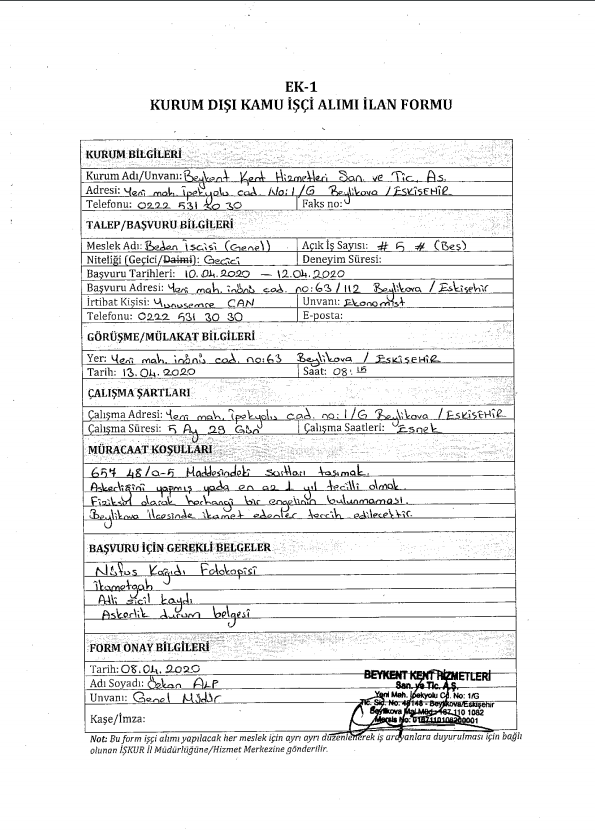 EK-1
KURUM DIŞI KAMU İŞÇİ ALIMI İLAN FORMU
KURUM BİLGİLERİ
Kurum Adı/Unvanı: Beykent Kent Hizmetleri San. ve Tic. A.s.
Adresi: Yeni mah. ipekyolu cad. No:1/G Beylikova / ESKİSEHİR
Telefonu: 0222 531 30 30 Faks no:
TALEP/BAŞVURU BİLGİLERİ
Meslek Adı: Beden İscisi (Genel) Açık İş Sayısı: # 5 # (Beş)
Niteliği (Geçici/Daimi): Gecici Deneyim Süresi:
Başvuru Tarihleri: 10.04.2020 — 12.04.2020
Başvuru Adresi: Yeni mah. inönü cad. no:63/112 Beylikova / Eskişehir
İrtibat Kişisi: Yunusemre CAN Unvanı: Ekonomist
Telefonu: 0222 531 30 30 E-posta:
GÖRÜŞME/MÜLAKAT BİLGİLERİ
Yer: Yeni mah. inönü cad. no:63 Beylikova / ESKİSEHİR
Tarih: 13.04.2020 Saat: 08:15
ÇALIŞMA ŞARTLARI
Çalışma Adresi: Yeni mah. ipekyolu cad. no:1/G Beylikova / ESKİSEHİR
Çalışma Süresi: 5 Ay 29 Gün Çalışma Saatleri: Esnek
MÜRACAAT KOŞULLARI
657 48/a-5 Maddesindeki sartları tasımak.
Askerliğini yapmış yada en az 1 yıl tecilli olmak.
Fiziksel olarak herhangi bir engelinin bulunmaması.
Beylikova ilcesinde ikamet edenler tercih edilecektir.
BAŞVURU İÇİN GEREKLİ BELGELER
Nüfus Kağıdı Fotokopisi
İkametgah
Adli Sicil kaydı
Askerlik durum belgesi
FORM ONAY BİLGİLERİ
Tarih: 08.04.2020
Adı Soyadı: Özkan ALP
Unvanı: Genel Müdür
Kaşe/İmza:
BEYKENT KENT HİZMETLERİ
San. ve Tic. A.Ş.
Yeni Mah. İpekyolu Cd. No: 1/G
Tic. Sic. No: 48148 - Beylikova/Eskişehir
Beylikova Mal Müd: 167 110 1082
Mersis No: 0167110108200001
Not: Bu form işçi alımı yapılacak her meslek için ayrı ayrı düzenlenerek iş arayanlara duyurulması için bağlı
olunan İŞKUR İl Müdürlüğüne/Hizmet Merkezine gönderilir.